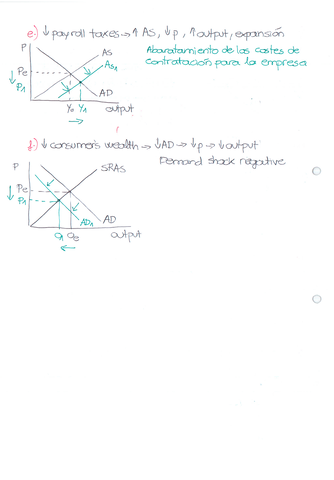 e.) ↓ payroll taxes → ↑ AS, ↓p, ↑output, expansión
Abaratamiento de los costes de
contratación para la empresa
P
AS
AS1
Pe
P1
AD
Yo Y1 output
f.) ↓ consumer's wealth → ↓AD → ↓p → ↓output
Demand shock negative
P
SRAS
Pe
P1
AD1 AD
Q1 Qe output